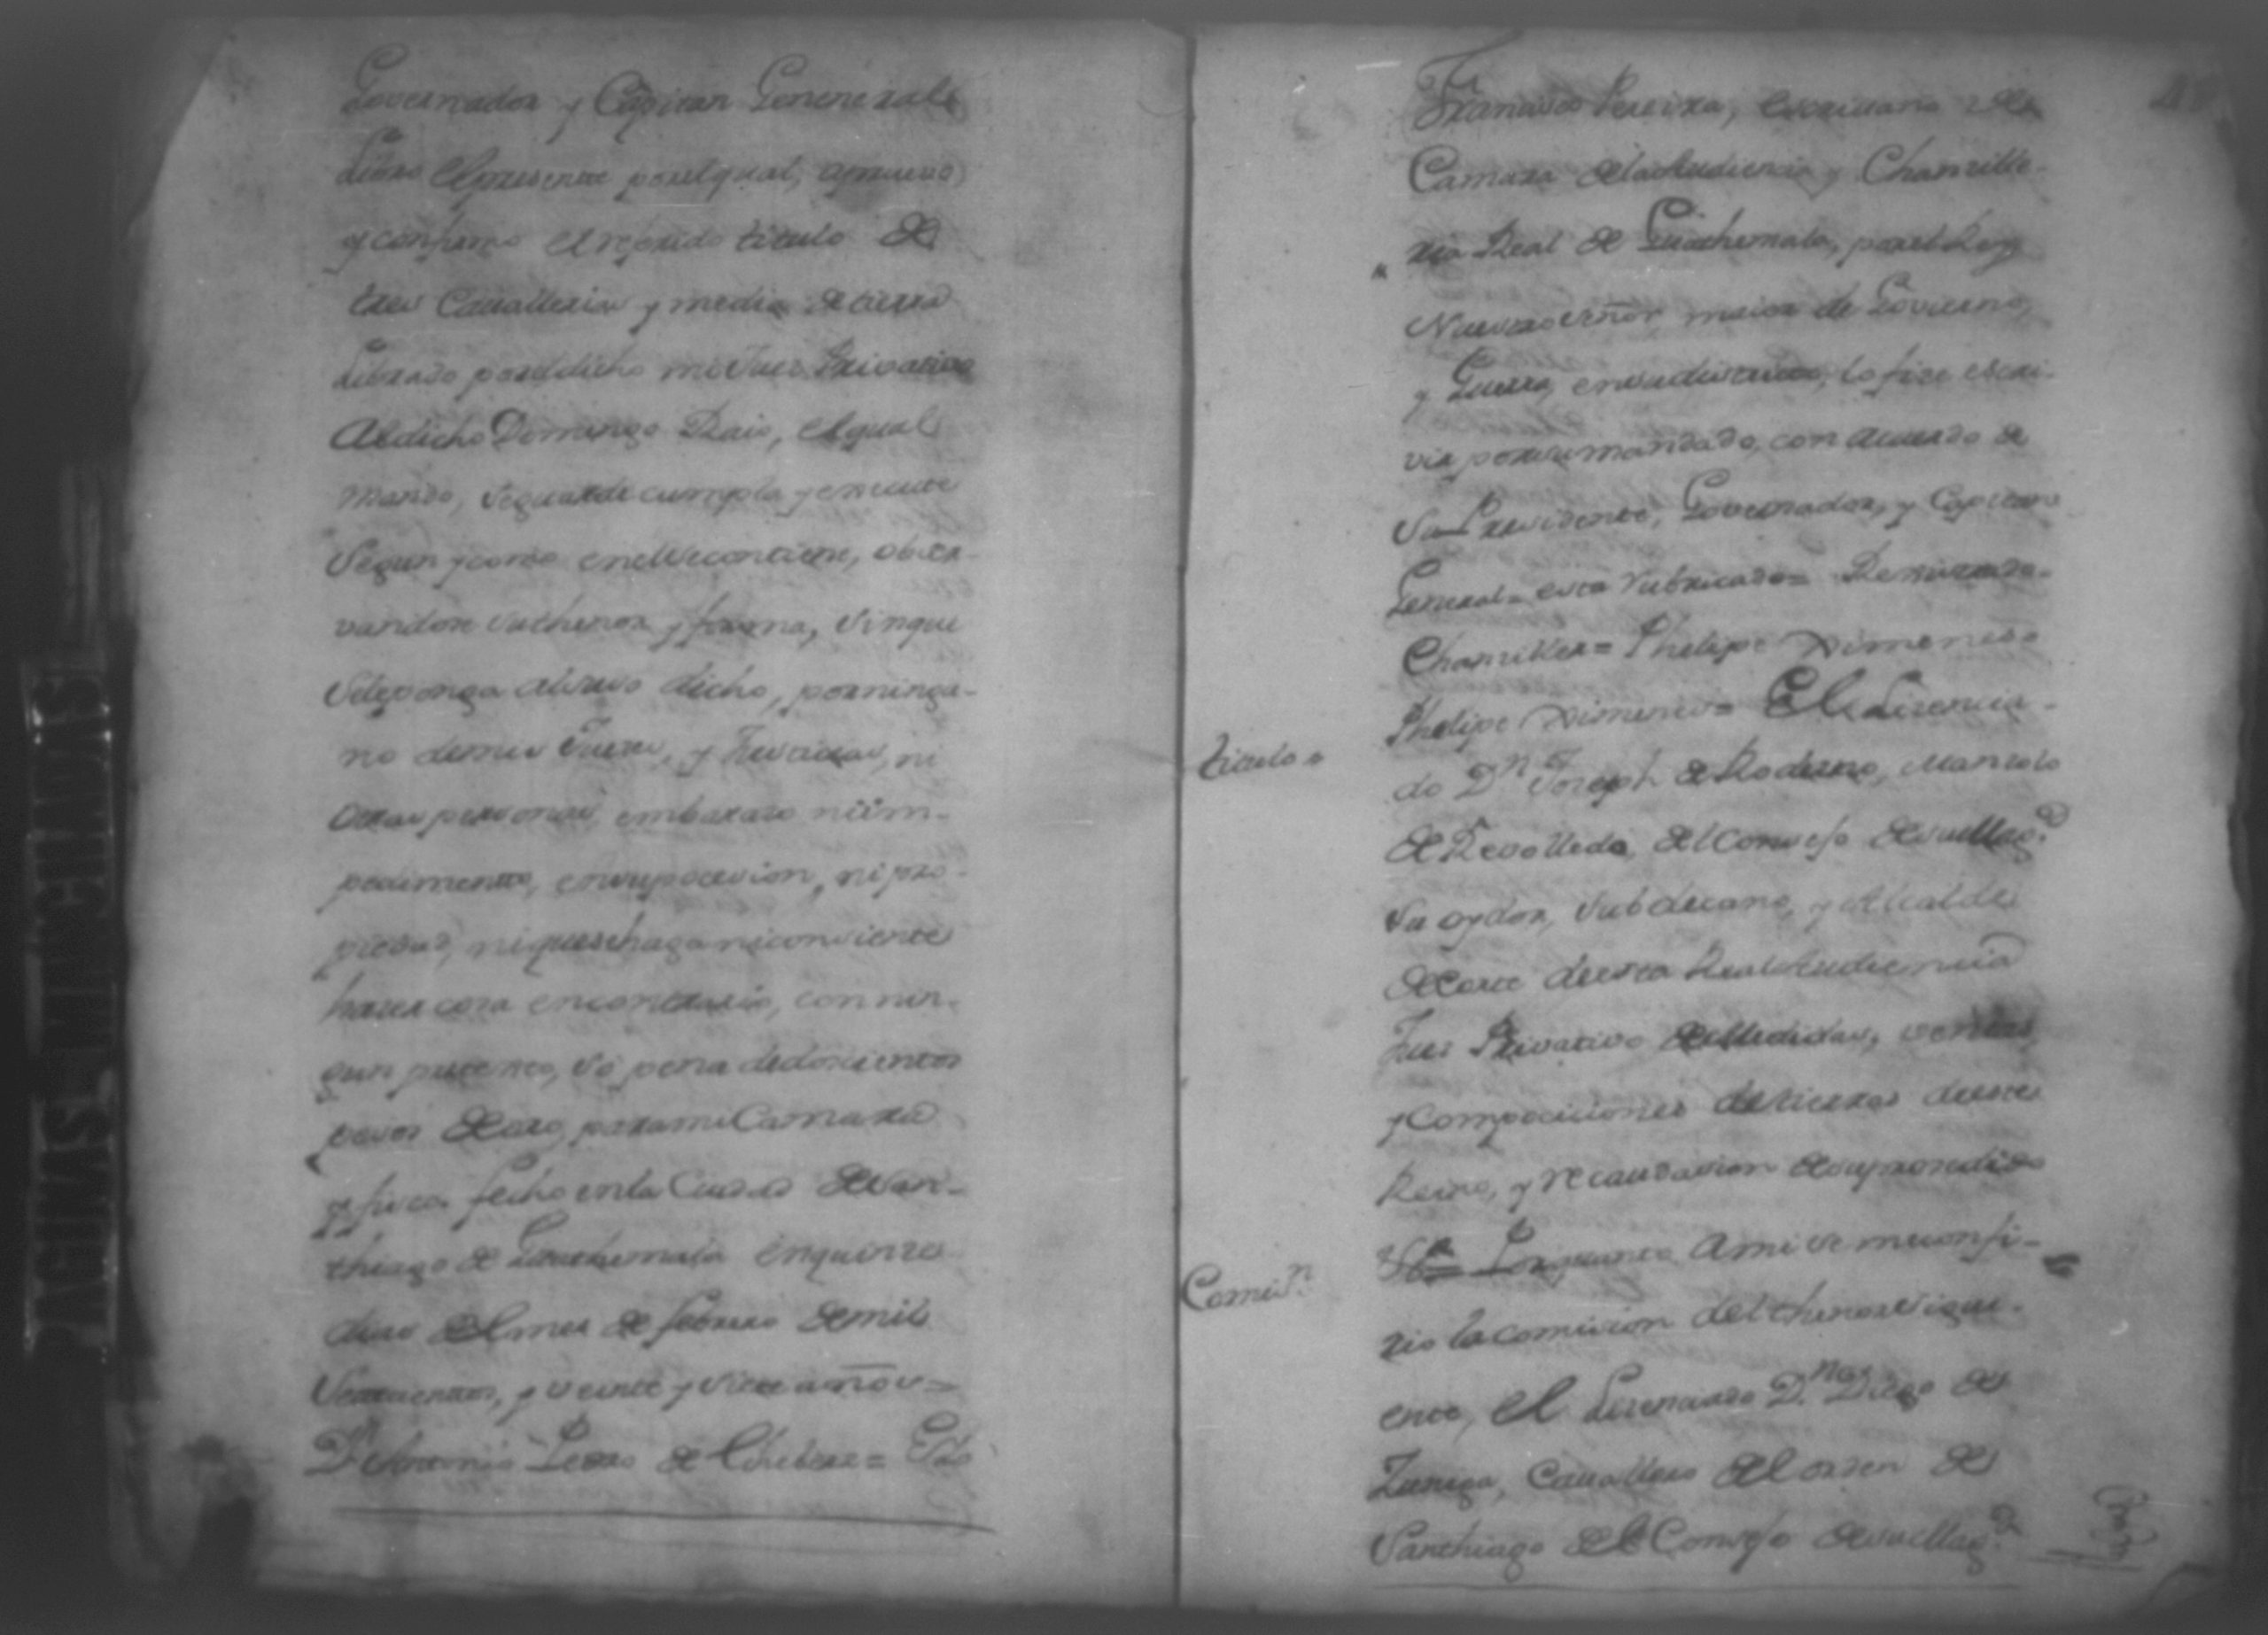 Governador y Capitan Genereral
Libro el presente por el qual, apruevo,
y confirmo el referido titulo de
tres Cavallerias y media de tierra
Librado por el dicho mi Juez Privativo
Al dicho Domingo Ruis, el qual
mando, se guarde cumpla y execute
segun y como en el se contiene, obser-
vandose su thenor y forma, sin que
se le ponga al suso dicho, por ningu-
no de mis Jueses, y Justicias, ni
otras personas, embarazo ni im-
pedimento, en su posecion, ni pro-
piedad, ni que se haga ni consiente
hazer cosa en contrario, con nin-
gun pretexto, so pena de docientos
pesos de oro, para mi Camara
y fisco. fecho en la Ciudad de San-
thiago de Guathemala en quinze
dias del mes de febrero de mil
setecientos, y veinte y siete años =
Dn Antonio Pedro de Echebers = Yo
Francisco Pereira, escrivano de
Camara de la Audiencia y Chancille-
ria Real de Guathemala, por el Rey
Nuestro señor, maior de Govierno,
y Guerra, en su distrito, lo fize escri-
vir por su mandado, con acuerdo de
su Presidente, Governador, y Capitan
General = esta rubricado = Rexistrado =
Chanciller = Phelipe Ximenes =
Phelipe Ximenes = El Licencia-
titulo =
do Dn Joseph de Rodesno, Manzolo
de Revolledo, del Consejo de su Magd.
su oydor, subdecano, y Alcalde
de Corte de esta Real Audiencia
Juez Privativo de Medidas, ventas
y Compociciones de tierras de este
Reino, y recaudacion de su procedido
Comin.
Por quanto A mi se me confi-
rio la comision del thenor sigui-
ente, el Licenciado Dn Diego de
Zuniga, Cavallero del orden de
Santhiago del Consejo de su Magd.